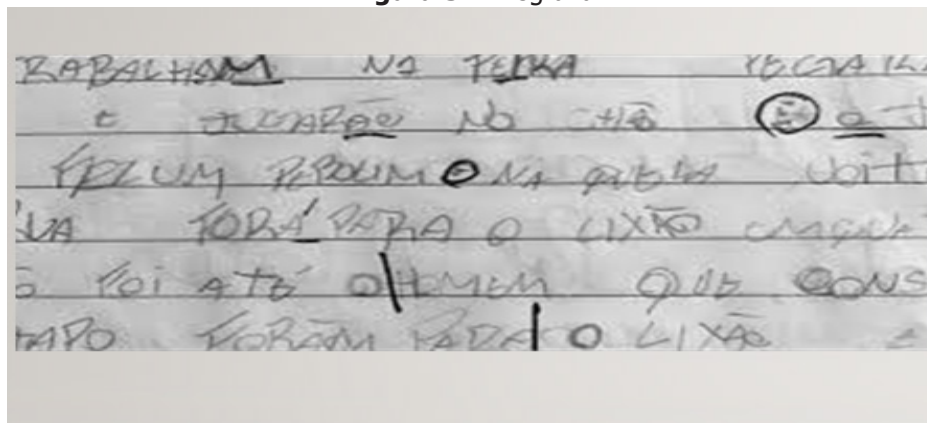 RABALHAM NA FEIRA
E JUGARÃO NO CHÃO E O
FEZ UM PEPOLIM O NA QUELA NOIT
UA FORÁ PARA O LIXÃO
FOI ATÉ O HOMEM QUE CONS
TAPO FORAM PARA O LIXÃO E